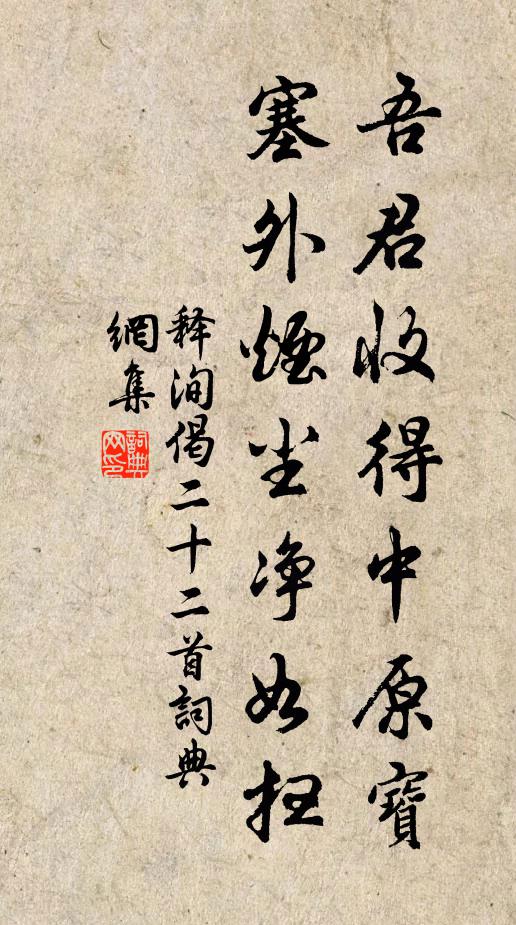 吾君收得中原寶
塞外煙尘淨如扫
释洵偈二十二首詞典
網集
詞典網印